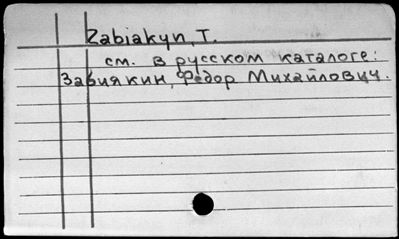 Zabiakyn, T.
см. в русском каталоге:
Забиякин, Федор Михайлович.